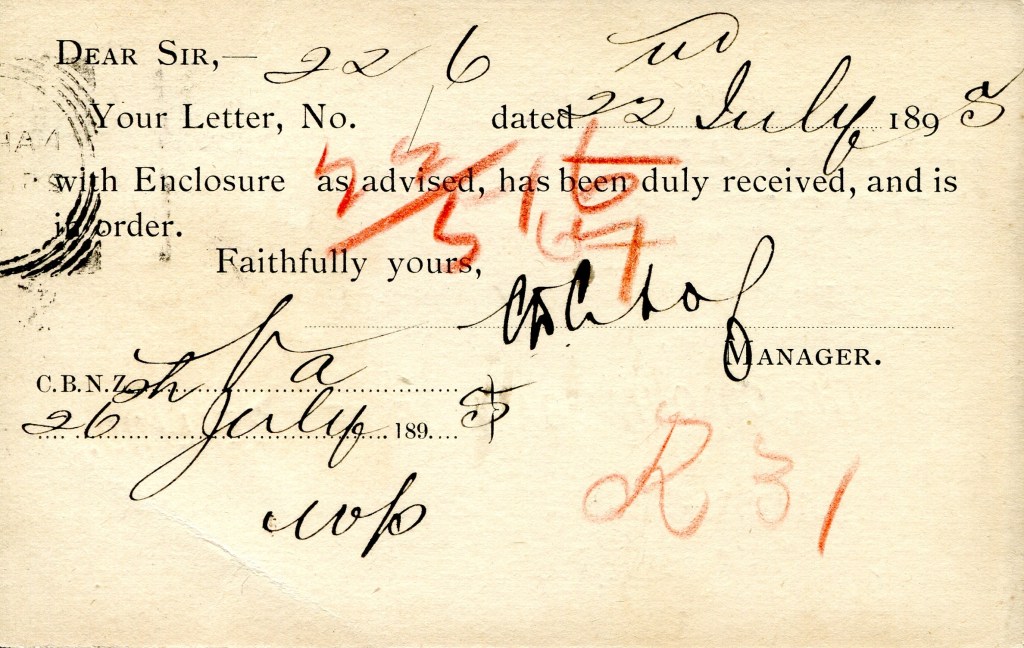 DEAR SIR,—
Your Letter, No. 226 dated 22nd July 1893
with Enclosure as advised, has been duly received, and is
in order.
Faithfully yours,
MANAGER.
C.B.N.Z.
26th July 1893
R 31